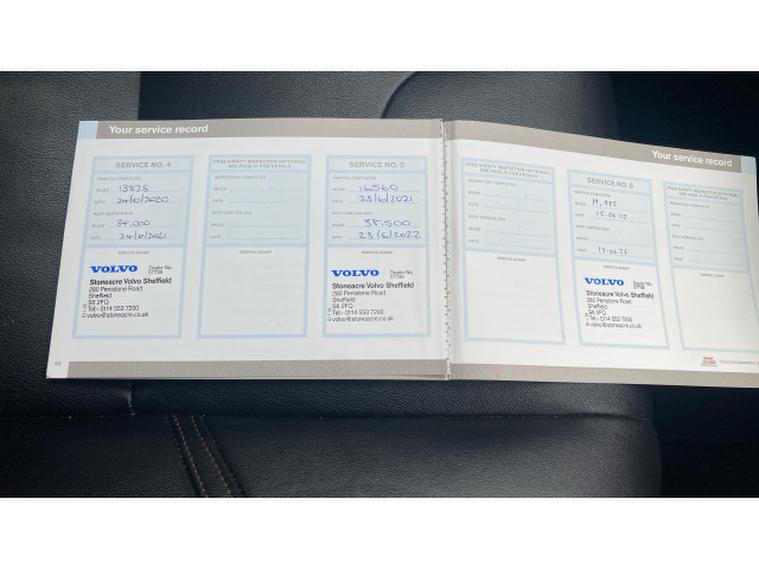 Your service record
SERVICE NO. 4
SERVICE COMPLETED
MILES 13878
DATE 24/6/2020
NEXT SERVICE DUE
MILES 34,000
DATE 24/6/2021
SERVICE STAMP
VOLVO Dealer No.
Stoneacre Volvo Sheffield
280 Penistone Road
Sheffield
S6 2FQ
Tel:- 0114 553 7200
volvo@stoneacre.co.uk
48
FREE SAFETY INSPECTION (OPTIONAL)
SEE PAGE 41 FOR DETAILS
INSPECTION COMPLETED
MILES
DATE
NEXT SERVICE DUE
MILES
DATE
SERVICE STAMP
SERVICE NO. 5
SERVICE COMPLETED
MILES 16560
DATE 23/6/2021
NEXT SERVICE DUE
MILES 38,500
DATE 23/6/2022
SERVICE STAMP
VOLVO Dealer No.
Stoneacre Volvo Sheffield
280 Penistone Road
Sheffield
S6 2FQ
Tel:- 0114 553 7200
volvo@stoneacre.co.uk
Your service record
FREE SAFETY INSPECTION (OPTIONAL)
SEE PAGE 41 FOR DETAILS
INSPECTION COMPLETED
MILES
DATE
NEXT SERVICE DUE
MILES
DATE
SERVICE STAMP
SERVICE NO. 6
SERVICE COMPLETED
MILES
DATE 15.06.22
NEXT SERVICE DUE
MILES
DATE
SERVICE STAMP
VOLVO Dealer No.
Stoneacre Volvo Sheffield
280 Penistone Road
Sheffield
S6 2FQ
Tel:- 0114 553 7200
volvo@stoneacre.co.uk
FREE SAFETY INSPECTION (OPTIONAL)
SEE PAGE 41 FOR DETAILS
INSPECTION COMPLETED
MILES
DATE
NEXT SERVICE DUE
MILES
DATE
SERVICE STAMP